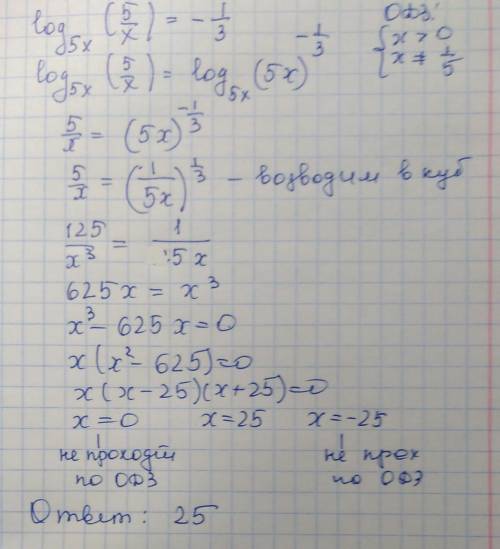 log_{5x} (5/x) = - 1/3
ОДЗ:
{ x > 0
x ≠ 1/5
log_{5x} (5/x) = log_{5x} (5x)^{-1/3}
5/x = (5x)^{-1/3}
5/x = (1/5x)^{1/3} - возводим в куб
125/x³ = 1/5x
625x = x³
x³ - 625x = 0
x(x² - 625) = 0
x(x - 25)(x + 25) = 0
x = 0 x = 25 x = -25
не проходит не прох
по ОДЗ по ОДЗ
Ответ: 25